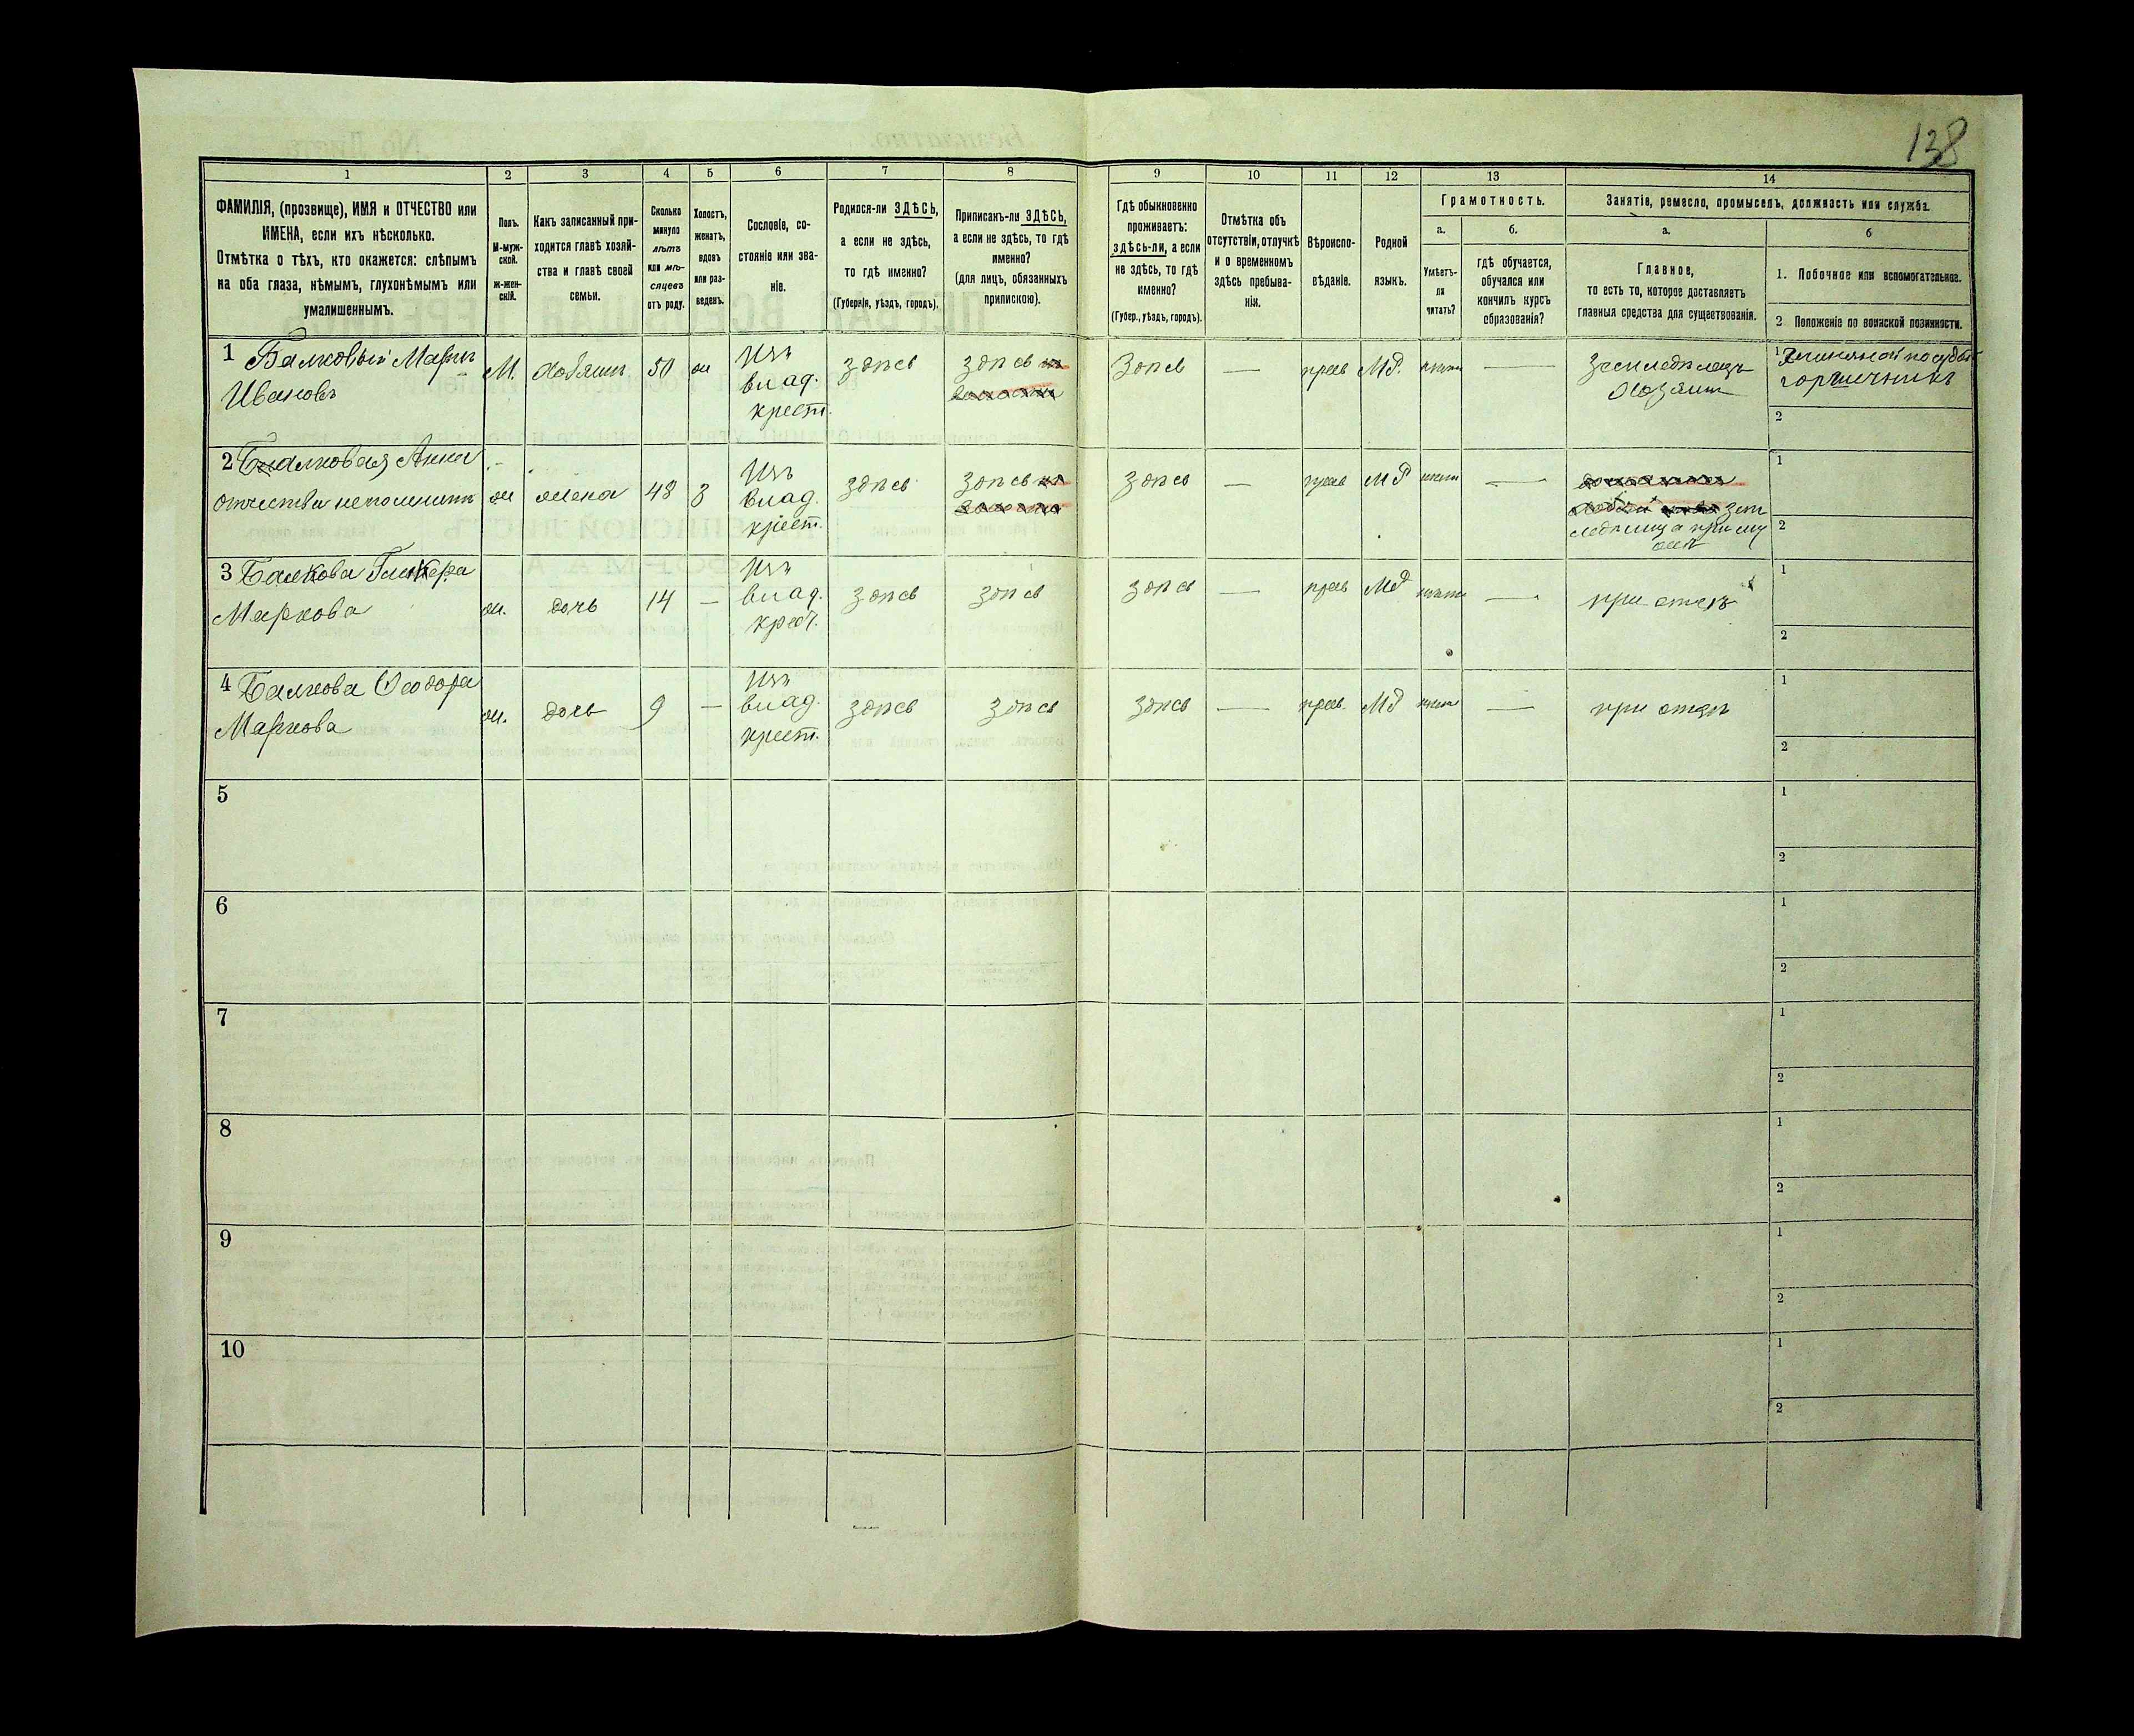 138
1
2
3
4
5
6
7
8
9
10
11
12
13
14
ФАМИЛІЯ, (прозвище), ИМЯ и ОТЧЕСТВО или
ИМЕНА, если ихъ нѣсколько.
Отмѣтка о тѣхъ, кто окажется: слѣпымъ
на оба глаза, нѣмымъ, глухонѣмымъ или
умалишеннымъ.
Полъ.
М-муж-
ской.
ж-жен-
скій.
Какъ записанный при-
ходится главѣ хозяй-
ства и главѣ своей
семьи.
Сколько
минуло
лѣтъ
или мѣ-
сяцевъ
отъ роду.
Холостъ,
женатъ,
вдовъ
или раз-
веденъ.
Сословіе, со-
стояніе или зва-
ніе.
Родился-ли ЗДѢСЬ,
а если не здѣсь,
то гдѣ именно?
(Губернія, уѣздъ, городъ).
Приписанъ-ли ЗДѢСЬ,
а если не здѣсь, то гдѣ
именно?
(для лицъ, обязанныхъ
припискою).
Гдѣ обыкновенно
проживаетъ:
здѣсь-ли, а если
не здѣсь, то гдѣ
именно?
(Губер., уѣздъ, городъ).
Отмѣтка объ
отсутствіи, отлучкѣ
и о временномъ
здѣсь пребыва-
ніи.
Вѣроиспо-
вѣданіе.
Родной
языкъ.
Грамотность.
а.
Умѣетъ-
ли
читать?
б.
гдѣ обучается,
обучался или
кончилъ курсъ
образованія?
Занятіе, ремесло, промыселъ, должность или служба.
а.
Главное,
то есть то, которое доставляетъ
главныя средства для существованія.
б
1. Побочное или вспомогательное.
2 Положеніе по воинской повинности.
1 Балковый Маркъ
Ивановъ
М.
хозяинъ
50
ж
изъ
влад.
крест.
здѣсь
здѣсь
Здѣсь
—
прав
МР.
нѣтъ
—
Земледѣлецъ
хозяинъ
1
глиняной посуды
горшечникъ
2
2 Балковая Анна
отчества не помнитъ
ж
жена
48
З
изъ
влад.
крест.
здѣсь
здѣсь
здѣсь
—
прав
МР
нѣтъ
—
зем
ледѣлица при му
жѣ
1
2
3 Балкова Гликера
Маркова
ж.
дочь
14
—
изъ
влад.
крест.
здѣсь
здѣсь
здѣсь
—
прав
МР
нѣтъ
—
при отцѣ
1
2
4 Балкова Ѳеодора
Маркова
ж.
дочь
9
—
изъ
влад.
крест.
здѣсь
здѣсь
здѣсь
—
прав.
МР
нѣтъ
—
при отцѣ
1
2
5
1
2
6
1
2
7
1
2
8
1
2
9
1
2
10
1
2